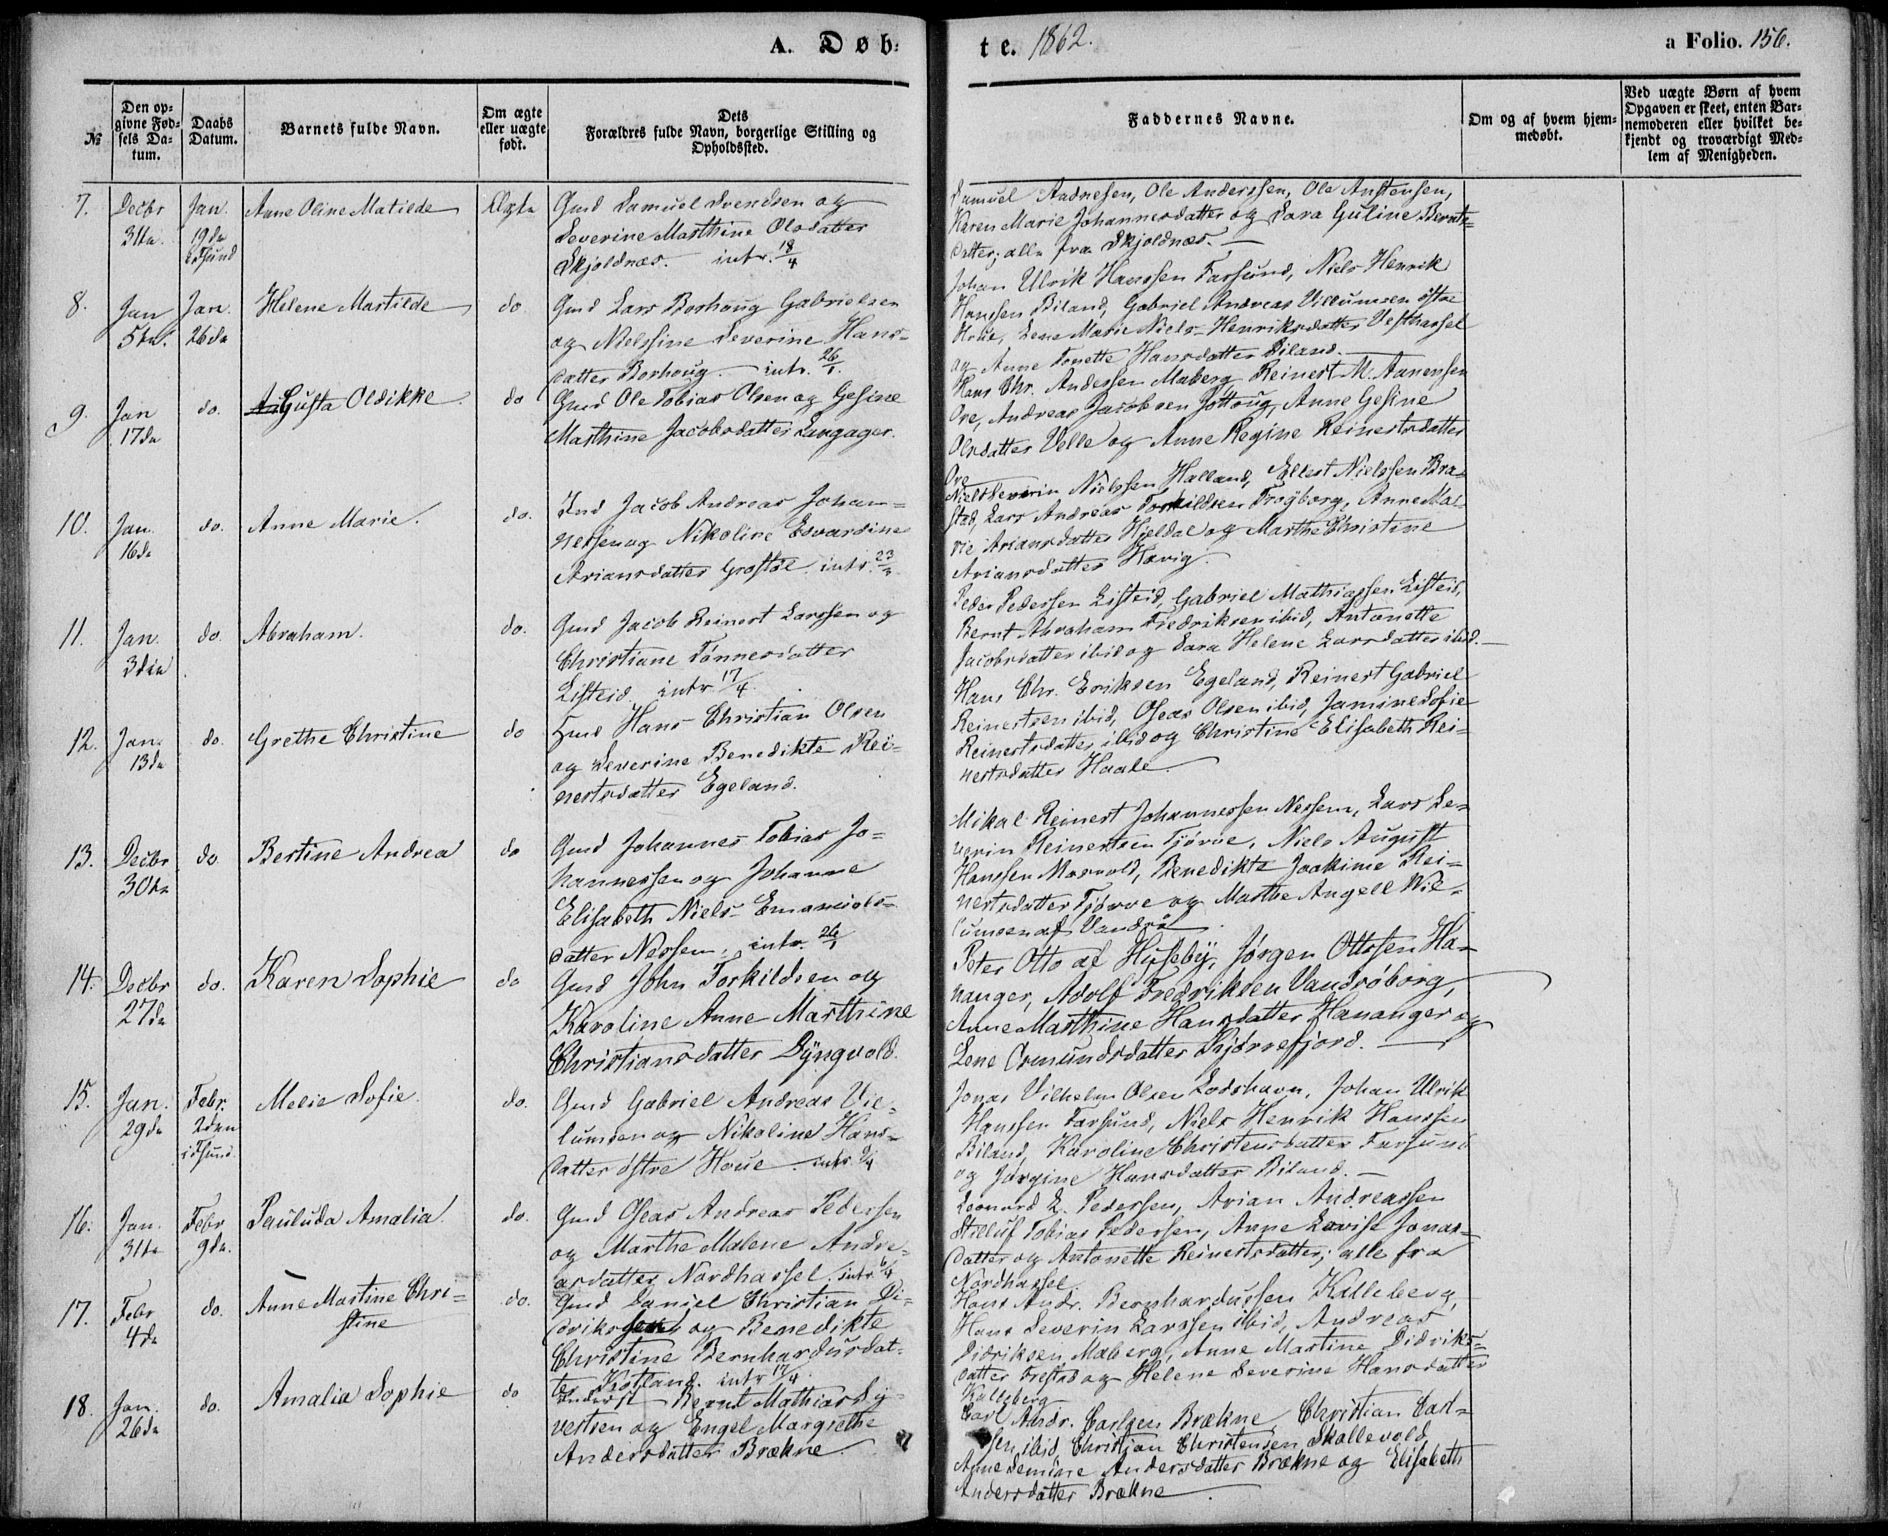 A. Døb=
te. 1862.
a Folio. 156.
№
Den op=
givne Fød=
sels Da=
tum.
Daabs
Datum.
Barnets fulde Navn.
Om ægte
eller uægte
født.
Dets
Forældres fulde Navn, borgerlige Stilling og
Opholdssted.
Faddernes Navne.
Om og af hvem hjem=
medøbt.
Ved uægte Børn af hvem
Opgaven er skeet, enten Bar=
nemoderen eller hvilket be=
kjendt og troværdigt Med=
lem af Menigheden.
7. Decbr 31te. Jan. 19de Anne Oline Matilde Ægte
Gmd Samuel Svendsen og
Severine Marthine Olsdatter
Skjoldnæs. intr. 18/4
Samuel Aadnesen, Ole Anderssen, Ole Anstensen,
Karen Marie Johannesdatter og Sara Guline Bernts=
datter, alle fra Skjoldnæs.
8. Jan 5te. Jan. 26de Helene Martilde do
Gmd Lars Borhoug Gabrielsen
og Nielssine Severine Hans=
datter Borhoug. intr. 26/1.
Johan Ulrik Hanssen Farsund, Niels Henrik
Hanssen Biland, Gabriel Andreas Villumsen østre
Houe, Lene Marie Niels-Henriksdatter Vesthassel
og Anne Tonette Hansdatter Biland.
9. Jan 17de do. Gusta Oldikke do
Gmd Ole Tobias Olsen og Gesine
Marthine Jacobsdatter Langager.
Hans Chr. Andersen Maberg, Reinert M. Aanensen
Ore, Andreas Jacobsen Jøttoug, Anne Gesine
Olsdatter Velle og Anne Regine Reinertsdatter
Ore
10. Jan. 16de do. Anne Marie. do.
Jacob Andreas Johan=
nessen og Nikoline Edvardine
Ariansdatter Grostøl. intr. 23/
Niels Severin Nielssen Halland, Ellert Nielssen Bra=
stad, Lars Andreas Torkildsen Frøyborg, Anne Ma=
rie Ariansdatter Hjeldal og Marthe Christine
Ariansdatter Hævig.
11. Jan. 3die do. Abraham. do.
Gmd Jacob Reinert Larssen og
Christiane Tønnesdatter
Listeid. intr. 17/4.
Peder Pedersen Listeid, Gabriel Mathiassen Listeid,
Bernt Abraham Fredriksen ibid, Antonette
Jacobsdatter ibid og Sara Helene Larsdatter ibid.
12. Jan. 13de do. Grethe Christine do
Gmd Hans Christian Olsen
og Severine Benedikte Rei=
nertsdatter Egeland.
Hans Chr. Eriksen Egeland, Reinert Gabriel
Reinertsen ibid, Oseas Olsen ibid, Jamine Sofie
Reinertsdatter ibid og Christine Elisabeth Rei=
nertsdatter Haale.
13. Decbr 30te do. Bertine Andrea do
Gmd Johannes Tobias Jo=
hannessen og Johanne
Elisabeth Niels-Emanuels=
datter Nessem, intr. 26/1
Mikal Reinert Johannessen Nessem, Lars Se=
verin Reinertsen Tjørve, Niels August
Hanssen Maevold, Benedikte Joakime Rei=
nertsdatter Tjørve og Marthe Angell Wil=
lumsen af Vandrø.
14. Decbr 27de do. Karen Sophie do
Gmd John Torkildsen og
Karoline Anne Marthine
Christiansdatter Dyngvold.
Peter Otto af Huseby, Jørgen Ottosen Ha=
nanger, Adolf Fredriksen Vandrøborg,
Anne Marthine Hansdatter Hananger og
Lene Osmundsdatter Kjørrefjord.
15. Jan. 29de Febr. 2den Melie Sofie. do.
Gmd Gabriel Andreas Vil=
lumsen og Nikoline Hans=
datter østre Houe. intr.
Jonas Vilhelm Olsen Lodshavn, Johan Ulrik
Hanssen Farsund, Niels Henrik Hanssen
Biland, Karoline Christensdatter Farsund
og Jørgine Hansdatter Biland.
16. Jan. 31te Febr 9de. Pauluda Amalia. do.
Gmd Oseas Andreas Pedersen
og Marthe Malene Andre=
asdatter Nordhassel. intr.
Leonard L. Pedersen, Arian Andreassen
Stilluf Tobias Pedersen, Anne Lovise Jonas=
datter og Antonette Reinertsdatter; alle fra
Nordhassel
17. Febr 4de do. Anne Martine Chri=
stine do.
Gmd Daniel Christian Di=
driksen og Benedikte
Christine Bernhardusdat=
ter Kjøtland. intr. 17/4.
Hans Andr. Bernhardussen Kalleberg,
Hans Severin Larssen ibid, Andreas
Didriksen Maberg, Anne Martine Didriks=
datter og Helene Severine Hansdatter
Kalleberg
18. Jan. 26de do. Amalia Sophie do
Bernt Mathias Sy=
vertsen og Engel Margrethe
Andersdatter Brækne.
Carl Andr. Carlsen Brækne, Christian Carl=
sen ibid, Christian Christensen Skallevold,
Anne Andersdatter Brækne og Elisabeth
Andersdatter Brækne